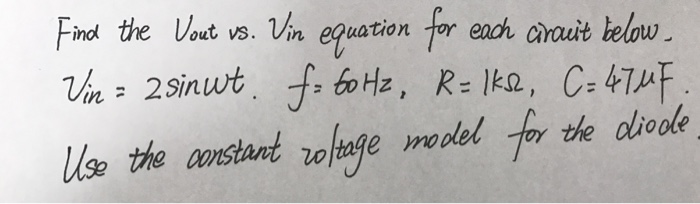 Find the Vout vs. Vin equation for each circuit below.
Vin = 2sinwt. f= 60Hz, R= 1kΩ, C= 47μF.
Use the constant voltage model for the diode.